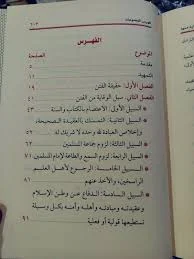 فهرس الموضوعات ١٠٣
الفهرس
الموضوع الصفحة
مقدمة ٥
التمهيد ١١
الفصل الأول: حقيقة الفتن ١٩
الفصل الثاني: سبل الوقاية من الفتن ٤١
السبيل الأولى: الاعتصام بالكتاب والسنة ٤٣
السبيل الثانية: التمسك بالعقيدة الصحيحة،
وإخلاص العبادة لله وحده لا شريك له ٥١
السبيل الثالثة: لزوم جماعة المسلمين ٦٢
السبيل الرابعة: لزوم السمع والطاعة لإمام المسلمين ٧١
السبيل الخامسة: الرجوع لأهل العلم
الراسخين، والأخذ عنهم ٨٦
السبيل السادسة: الدفاع عن وطن الإسلام
وعقيدته ومبادئه وأهله وأمنه بكل وسيلة
نستطيعها قولية أو فعلية ٩١